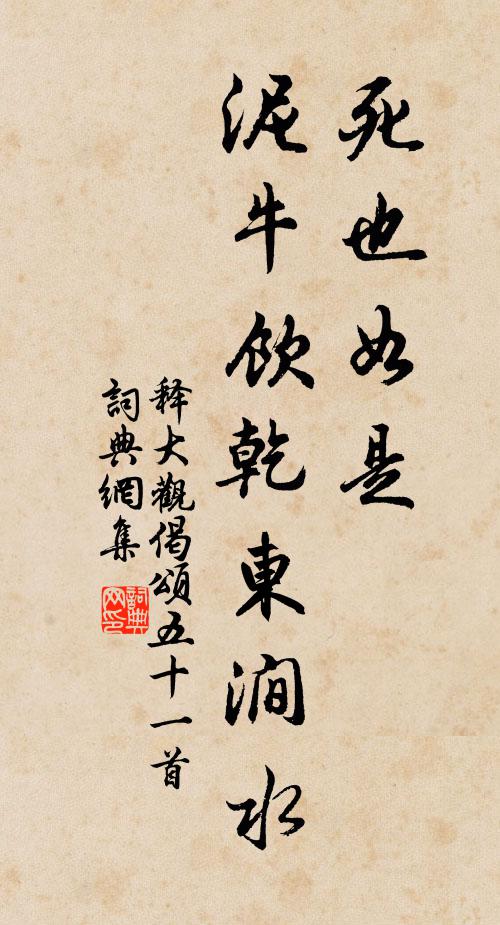 死也如是
泥牛飲乾東澗水
释大觀偈頌五十一首
詞典網集
詞典网印